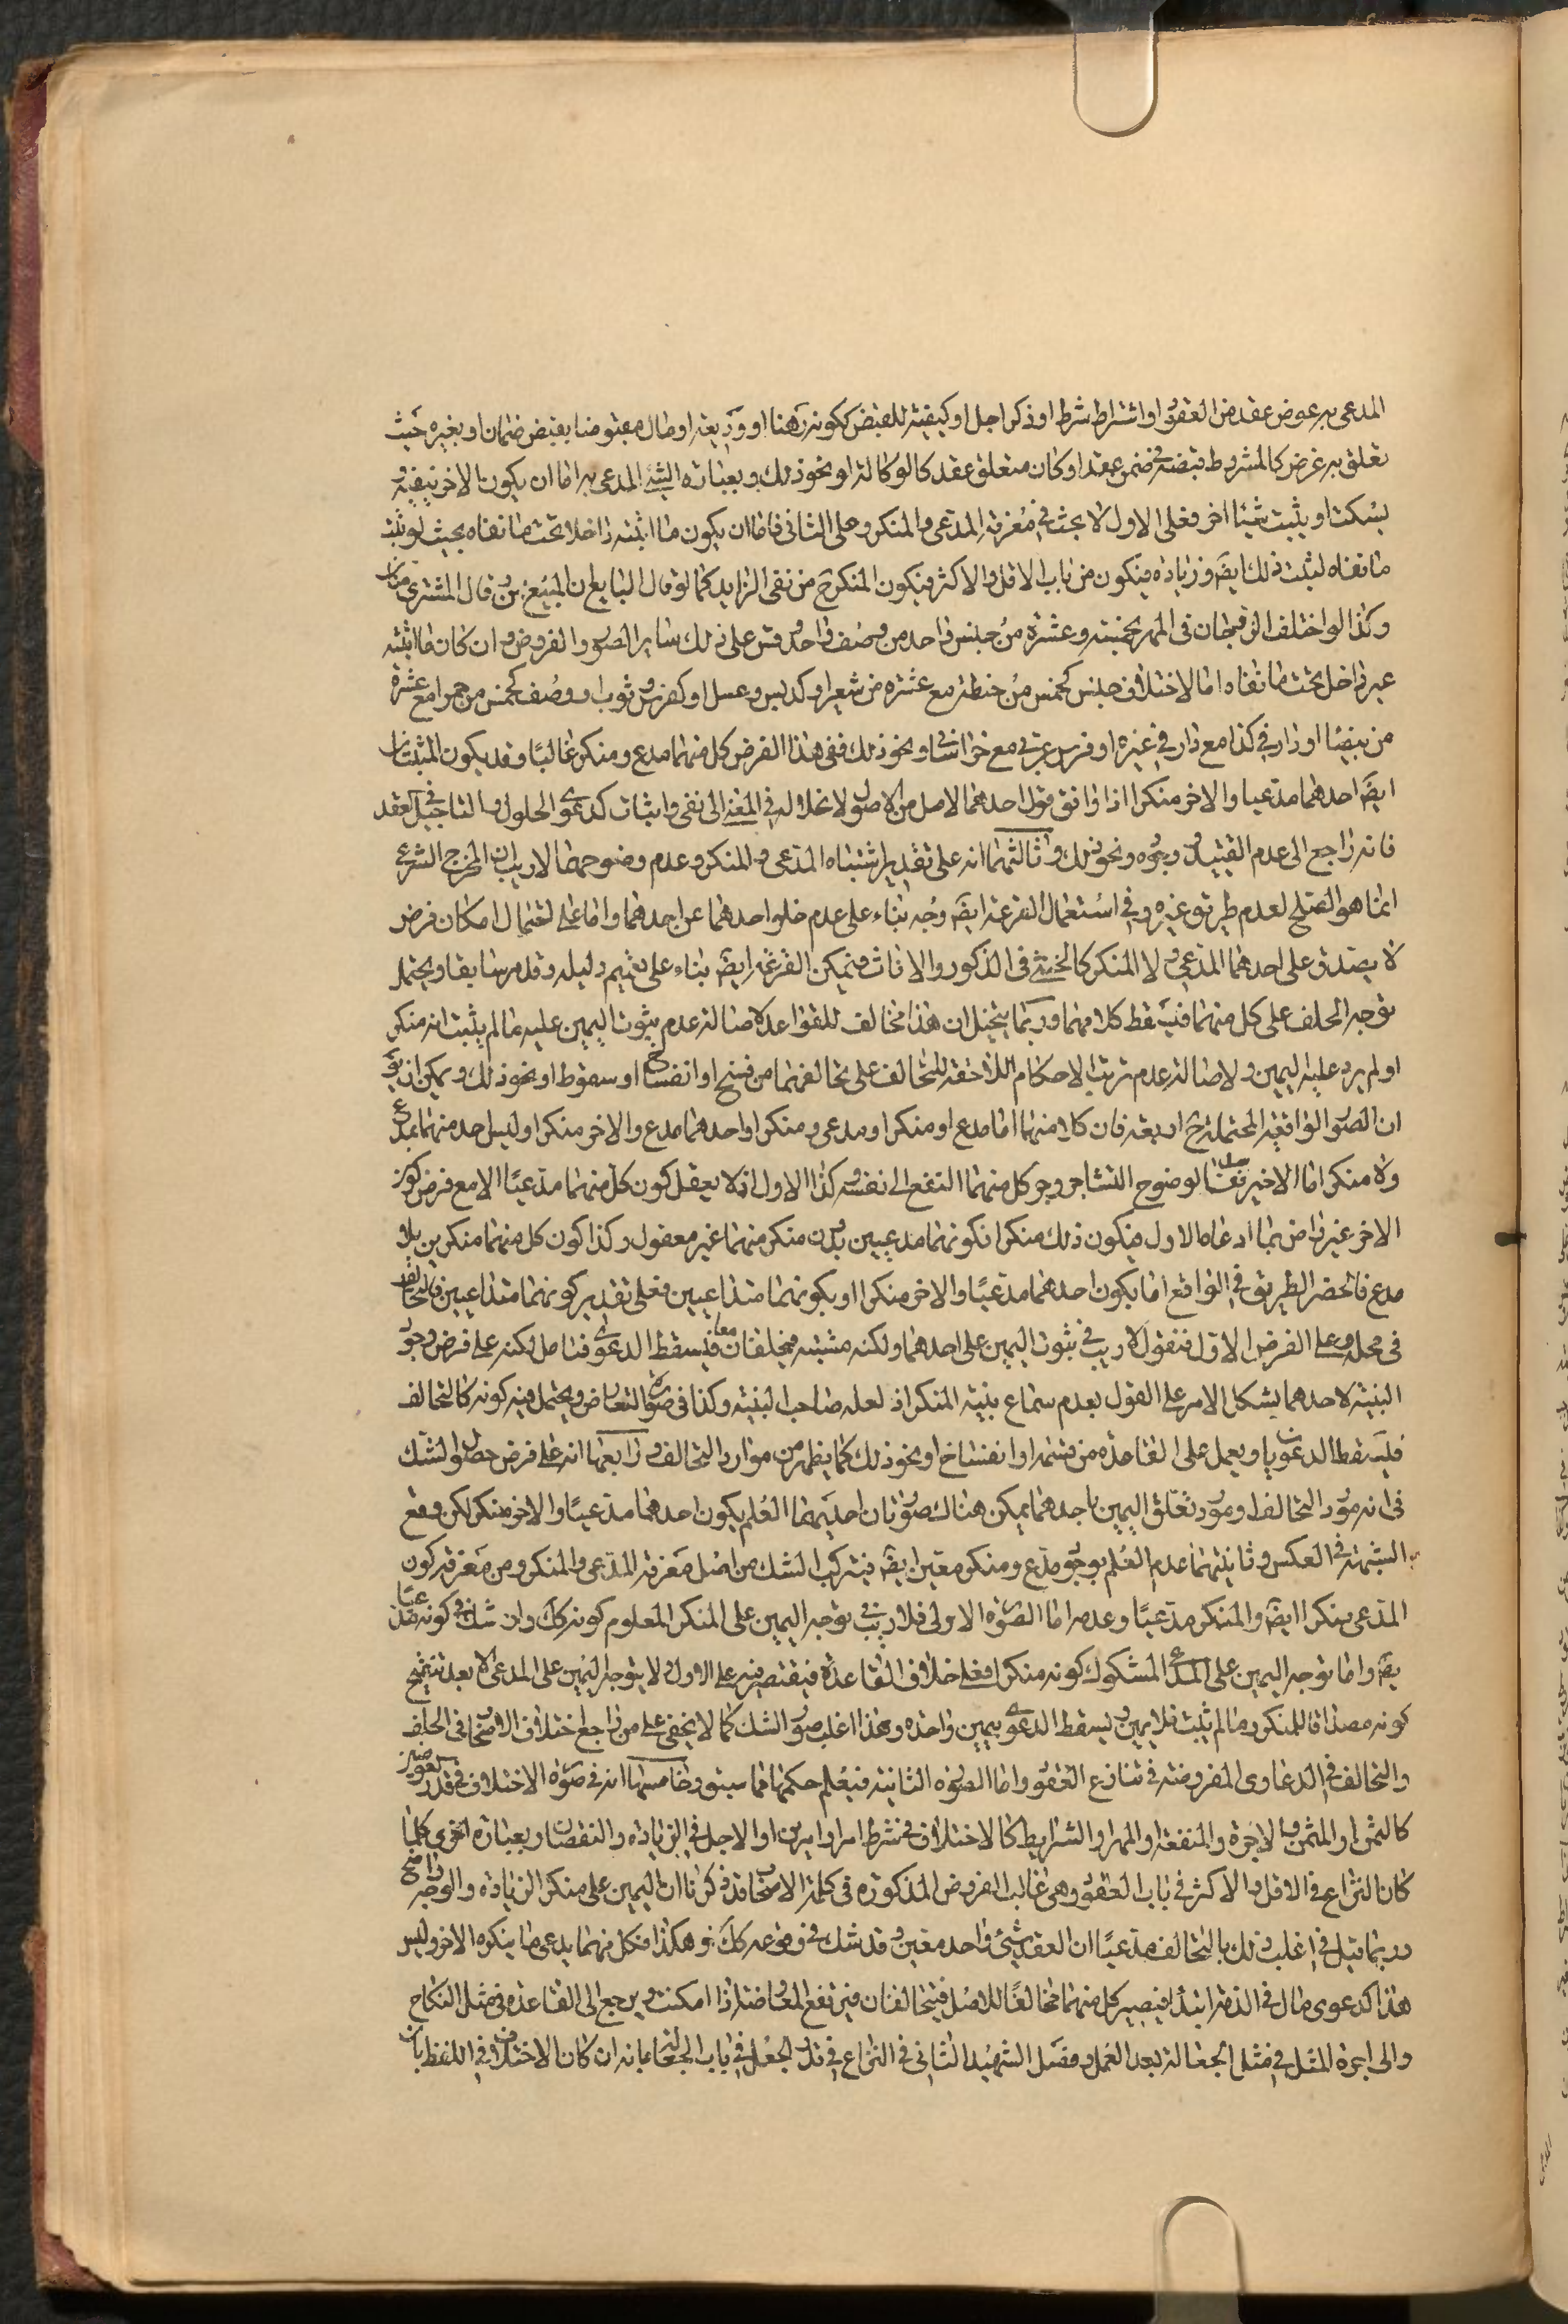 المدعى به عوض عقد من العقود او اشتراط شرط او ذكر اجل او كيفية للقبض ككونه رهنا او وديعة او مال مقبوضا بقبض ضمان او بغيره حيث
تعلق به غرض كالمشروط قبضه فى ضمن عقد او كان متعلق عقد كالوكالة او نحو ذلك و بعبارة الشئ المدعى به اما ان يكون الاخر ينفيه و
يسكت او يثبت شيئا اخر فعلى الاول لا بحث فى معرفة المدعى و المنكر و على الثانى فاما ان يكون ما اثبته داخلا تحت ما نفاه بحيث لو ثبت
ما نفاه لثبت ذلك ايضا و زيادة فيكون من باب الاقل و الاكثر فيكون المنكر ح من نفى الزايد كما لو قال البايع ان المبيع من و قال المشترى منان
و كذا لو اختلف الزوجان فى المهر بخمسة و عشرة من جنس واحد من وصف واحد و قس على ذلك ساير الصور و الفروض و ان كان ما اثبته
غير داخل تحت ما نفاه اما لاختلاف جنس كخمس من حنطة مع عشرة من شعير او كدبس و عسل او كفرس و ثوب او وصف كخمس من حمر مع عشرة
من بيض او دار فى كذا مع دار فى غيره او فرس عربى مع خراسانى و نحو ذلك ففى هذا الفرض كل منهما مدع و منكر غالبا و قد يكون المثبتان
ايضا احدهما مدعيا و الاخر منكرا اذا وافق قول احدهما الاصل من الاصول لانحلاله فى المعنى الى نفى و اثبات كدعوى الحلول و التاجيل فى العقد
فانه راجع الى عدم القيد و وجوده و نحو ذلك و ثالثهما انه على تقدير اشتباه المدعى و المنكر و عدم وضوحهما لا ريب ان المخرج الشرعى
انما هو الصلح لعدم طريق غيره و فى استعمال القرعة ايضا وجه بناء على عدم خلو احدهما عن احدهما و اما على احتمال امكان فرض
لا يصدق على احدهما المدعى و لا المنكر كالخنثى فى الذكور و الاناث فيمكن القرعة ايضا بناء على تعميم دليله و قد مر سابقا و يحتمل
توجه الحلف على كل منهما فيسقط كلامهما و ربما يتخيل ان هذا مخالف للقواعد لاصالة عدم ثبوت اليمين عليه ما لم يثبت انه منكر
او لم يرد عليه اليمين و لاصالة عدم ترتب الاحكام اللاحقة للتحالف على تحالفهما من فسخ او انفساخ او سقوط او نحو ذلك و يمكن ان يق
ان الصور الواقعية المحتملة ح اربعة فان كلا منهما اما مدع او منكر او مدعى و منكر او احدهما مدع و الاخر منكر او ليس احد منهما بمدع
و لا منكر اما الاخير فمنفى لوضوح التشاجر و جر كل منهما النفع الى نفسه و كذا الاول اذ لا يعقل كون كل منهما مدعيا الا مع فرض كون
الاخر غير راض بما ادعاه الاول فيكون ذلك منكرا فكونهما مدعيين بدون منكر منهما غير معقول و كذا كون كل منهما منكرين بلا
مدع فانحصر الطريق فى الواقع اما بكون احدهما مدعيا و الاخر منكرا او بكونهما متداعيين فعلى تقدير كونهما متداعيين فالتحالف
فى محله و على الفرض الاول فنقول لا ريب فى ثبوت اليمين على احدهما و لكنه مشتبه فيحلفان معا فيسقط الدعوى فتامل لكنه على فرض وجود
البينة لاحدهما يشكل الامر على القول بعدم سماع بينة المنكر اذ لعله صاحب البينة و كذا فى صورة التعارض و يحتمل فيه كونه كالتحالف
فليسقط الدعويان و يعمل على القاعدة من قسمة او انفساخ او نحو ذلك كما يظهر من موارد التحالف و رابعها انه على فرض حصول الشك
فى انه مورد التحالف او مورد تعلق اليمين باحدهما يمكن هناك صورتان احديهما العلم بكون احدهما مدعيا و الاخر منكر لكن وقع
الشبهة فى العكس و ثانيتهما عدم العلم بوجود مدع و منكر معين ايضا فيتركب الشك من اصل معرفة المدعى و المنكر و من معرفة كون
المدعى منكرا ايضا و المنكر مدعيا و عدمه اما الصورة الاولى فلا ريب فى توجه اليمين على المنكر المعلوم كونه كك و ان شك فى كونه مدعيا
ايضا و اما توجه اليمين على المدعى المشكوك كونه منكرا فعلى خلاف القاعدة فيقتصر فيه على الاول و لا يتوجه اليمين على المدعى الا بعد تنقيح
كونه مصداقا للمنكر و ما لم يثبت فلا يمين و يسقط الدعوى بيمين واحدة و هذا اغلب صور الشك كما لا يخفى على من راجع اختلاف الاصحاب فى الحلف
و التحالف فى الدعاوى المفروضة فى تنازع العقود و اما الصورة الثانية فيعلم حكمها مما سبق و خامسها انه فى صورة الاختلاف فى قدر العوضين
كالثمن او المثمن و الاجرة و المنفعة او المهر او الشرايط كالاختلاف فى شرط امر او امرين او الاجل فى الزيادة و النقصان و بعبارة اخرى كلما
كان النزاع فى الاقل و الاكثر فى باب العقود و هى غالب الفروض المذكورة فى كلمة الاصحاب قد ذكرنا ان اليمين على منكر الزيادة و الوجه واضح
و ربما قيل فى اغلب ذلك بالتحالف مدعيا ان العقد شئ واحد معين و قد شك فى وقوعه كك و هكذا فكل منهما يدعى ما ينكره الاخر و ليس
هذا كدعوى مال فى الذمة ابتداء فيصير كل منهما مخالفا للاصل فيتحالفان فيرتفع المعاوضة اذا امكنت و يرجع الى القاعدة فى مثل النكاح
و الى اجرة المثل فى مثل الجعالة بعد العمل و فصل الشهيد الثانى فى النزاع فى قدر الجعل فى باب الجعالة بانه ان كان الاختلاف فى اللفظ بان